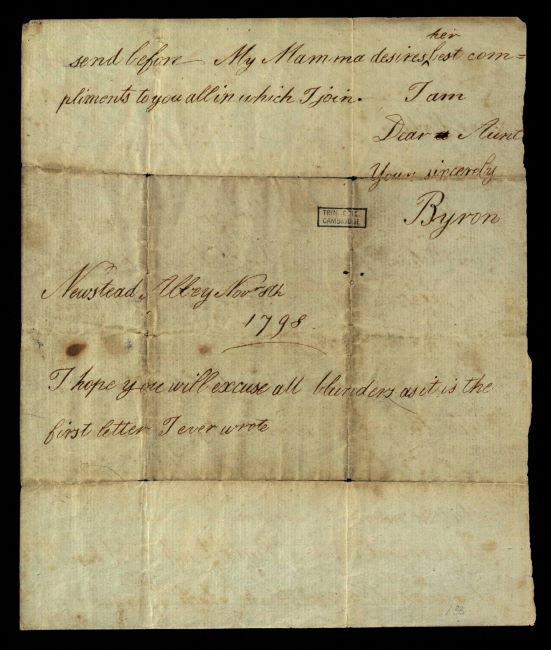 her
send before — My Mamma desires best com=
pliments to you all in which I join. I am
Dear Aunt
Your sincerely
Byron
TRIN. COLL.
CAMBRIDGE
Newstead Abbey Novr 8th
1798.
I hope you will excuse all blunders as it is the
first letter I ever wrote